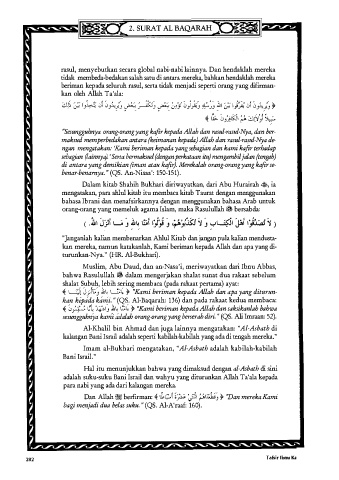 2. SURAT AL BAQARAH
rasul, menyebutkan secara global nabi-nabi lainnya. Dan hendaklah mereka
tidak membeda-bedakan salah satu di antara mereka, bahkan hendaklah mereka
beriman kepada seluruh rasul, serta tidak menjadi seperti orang yang difirman-
kan oleh Allah Ta'ala:
﴿ وَيُرِيدُونَ أَن يُفَرِّقُوا بَيْنَ اللهِ وَرُسُلِهِ وَيَقُولُونَ نُؤْمِنُ بِبَعْضٍ وَنَكْفُرُ بِبَعْضٍ وَيُرِيدُونَ أَن يَتَّخِذُوا بَيْنَ ذَلِكَ
سَبِيلاً أُوْلَائِكَ هُمُ الْكَافِرُونَ حَقًّا ﴾
"Sesungguhnya orang-orang yang kafir kepada Allah dan rasul-rasul-Nya, dan ber-
maksud memperbedakan antara (keimanan kepada) Allah dan rasul-rasul-Nya de-
ngan mengatakan: 'Kami beriman kepada yang sebagian dan kami kafir terhadap
sebagian (lainnya).' Serta bermaksud (dengan perkataan itu) mengambil jalan (tengah)
di antara yang demikian (iman atau kafir). Merekalah orang-orang yang kafir se-
benar-benarnya." (QS. An-Nisaa': 150-151).
Dalam kitab Shahih Bukhari diriwayatkan, dari Abu Hurairah, ia
mengatakan, para ahlul kitab itu membaca kitab Taurat dengan menggunakan
bahasa Ibrani dan menafsirkannya dengan menggunakan bahasa Arab untuk
orang-orang yang memeluk agama Islam, maka Rasulullah ﷺ bersabda:
( لاَ تُصَدِّقُوا أَهْلَ الْكِتَابِ وَ لاَ تُكَذِّبُوهُمْ وَ قُولُوا آمَنَّا بِاللهِ وَ مَا أَنْزَلَ اللهُ. )
"Janganlah kalian membenarkan Ahlul Kitab dan jangan pula kalian mendusta-
kan mereka, namun katakanlah, Kami beriman kepada Allah dan apa yang di-
turunkan-Nya." (HR. Al-Bukhari).
Muslim, Abu Daud, dan an-Nasa'i, meriwayatkan dari Ibnu Abbas,
bahwa Rasulullah ﷺ dalam mengerjakan shalat sunat dua rakaat sebelum
shalat Subuh, lebih sering membaca (pada rakaat pertama) ayat:
﴿ ءَامَنَّا بِاللهِ وَمَآأُنزِلَ إِلَيْنَا ﴾ "Kami beriman kepada Allah dan apa yang diturun-
kan kepada kami." (QS. Al-Baqarah: 136) dan pada rakaat kedua membaca:
﴿ ءَامَنَّا بِاللهِ وَاشْهَدْ بِأَنَّا مُسْلِمُونَ ﴾ "Kami beriman kepada Allah dan saksikanlah bahwa
sesungguhnya kami adalah orang-orang yang berserah diri." (QS. Ali Imraan: 52).
Al-Khalil bin Ahmad dan juga lainnya mengatakan: "Al-Asbath di
kalangan Bani Israil adalah seperti kabilah-kabilah yang ada di tengah mereka."
Imam al-Bukhari mengatakan, "Al-Asbath adalah kabilah-kabilah
Bani Israil."
Hal itu menunjukkan bahwa yang dimaksud dengan al Asbath di sini
adalah suku-suku Bani Israil dan wahyu yang diturunkan Allah Ta'ala kepada
para nabi yang ada dari kalangan mereka.
Dan Allah berfirman: ﴿ وَقَطَّعْنَاهُمُ اثْنَتَيْ عَشْرَةَ أَسْبَاطًا ﴾ "Dan mereka Kami
bagi menjadi dua belas suku." (QS. Al-A'raaf: 160).
282
Tafsir Ibnu Ka